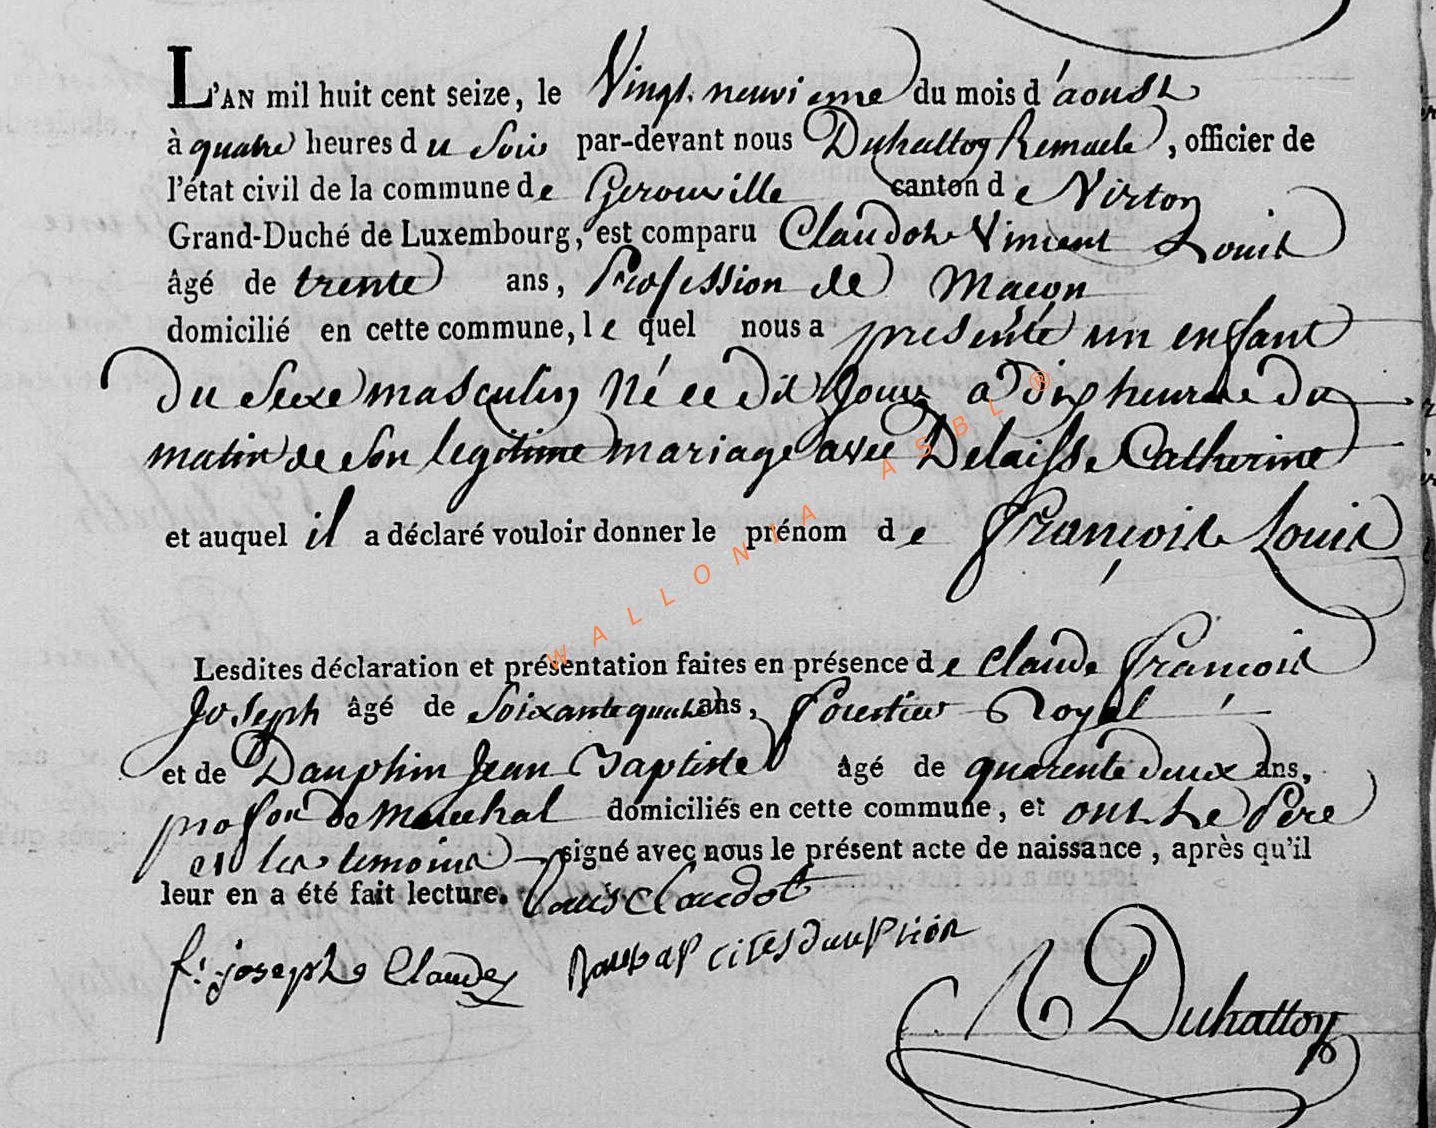 L'AN mil huit cent seize, le Vingt neuvieme du mois d'aoust
à quatre heures du Soir par-devant nous Duhattoy Remacle, officier de
l'état civil de la commune de Gerouville canton de Virton
Grand-Duché de Luxembourg, est comparu Claudot Vincent Louis
âgé de trente ans, Profession de Maçon
domicilié en cette commune, le quel nous a présenté un enfant
du Sexe masculin Né ce dit Jour a dix heures du
matin de Son legitime mariage avec Delaisse Catherine
et auquel il a déclaré vouloir donner le prénom de François Louis
Lesdites déclaration et présentation faites en présence de Claude François
Joseph âgé de Soixante quatre ans, forestier Royal
et de Dauphin Jean Baptiste âgé de quarente deux ans,
profon de Marechal domiciliés en cette commune, et ont Le Père
et les temoins signé avec nous le présent acte de naissance, après qu'il
leur en a été fait lecture. Louis Claudot
f. joseph Claude dauphien
R Duhattoy
WALLONIA ASBL ®